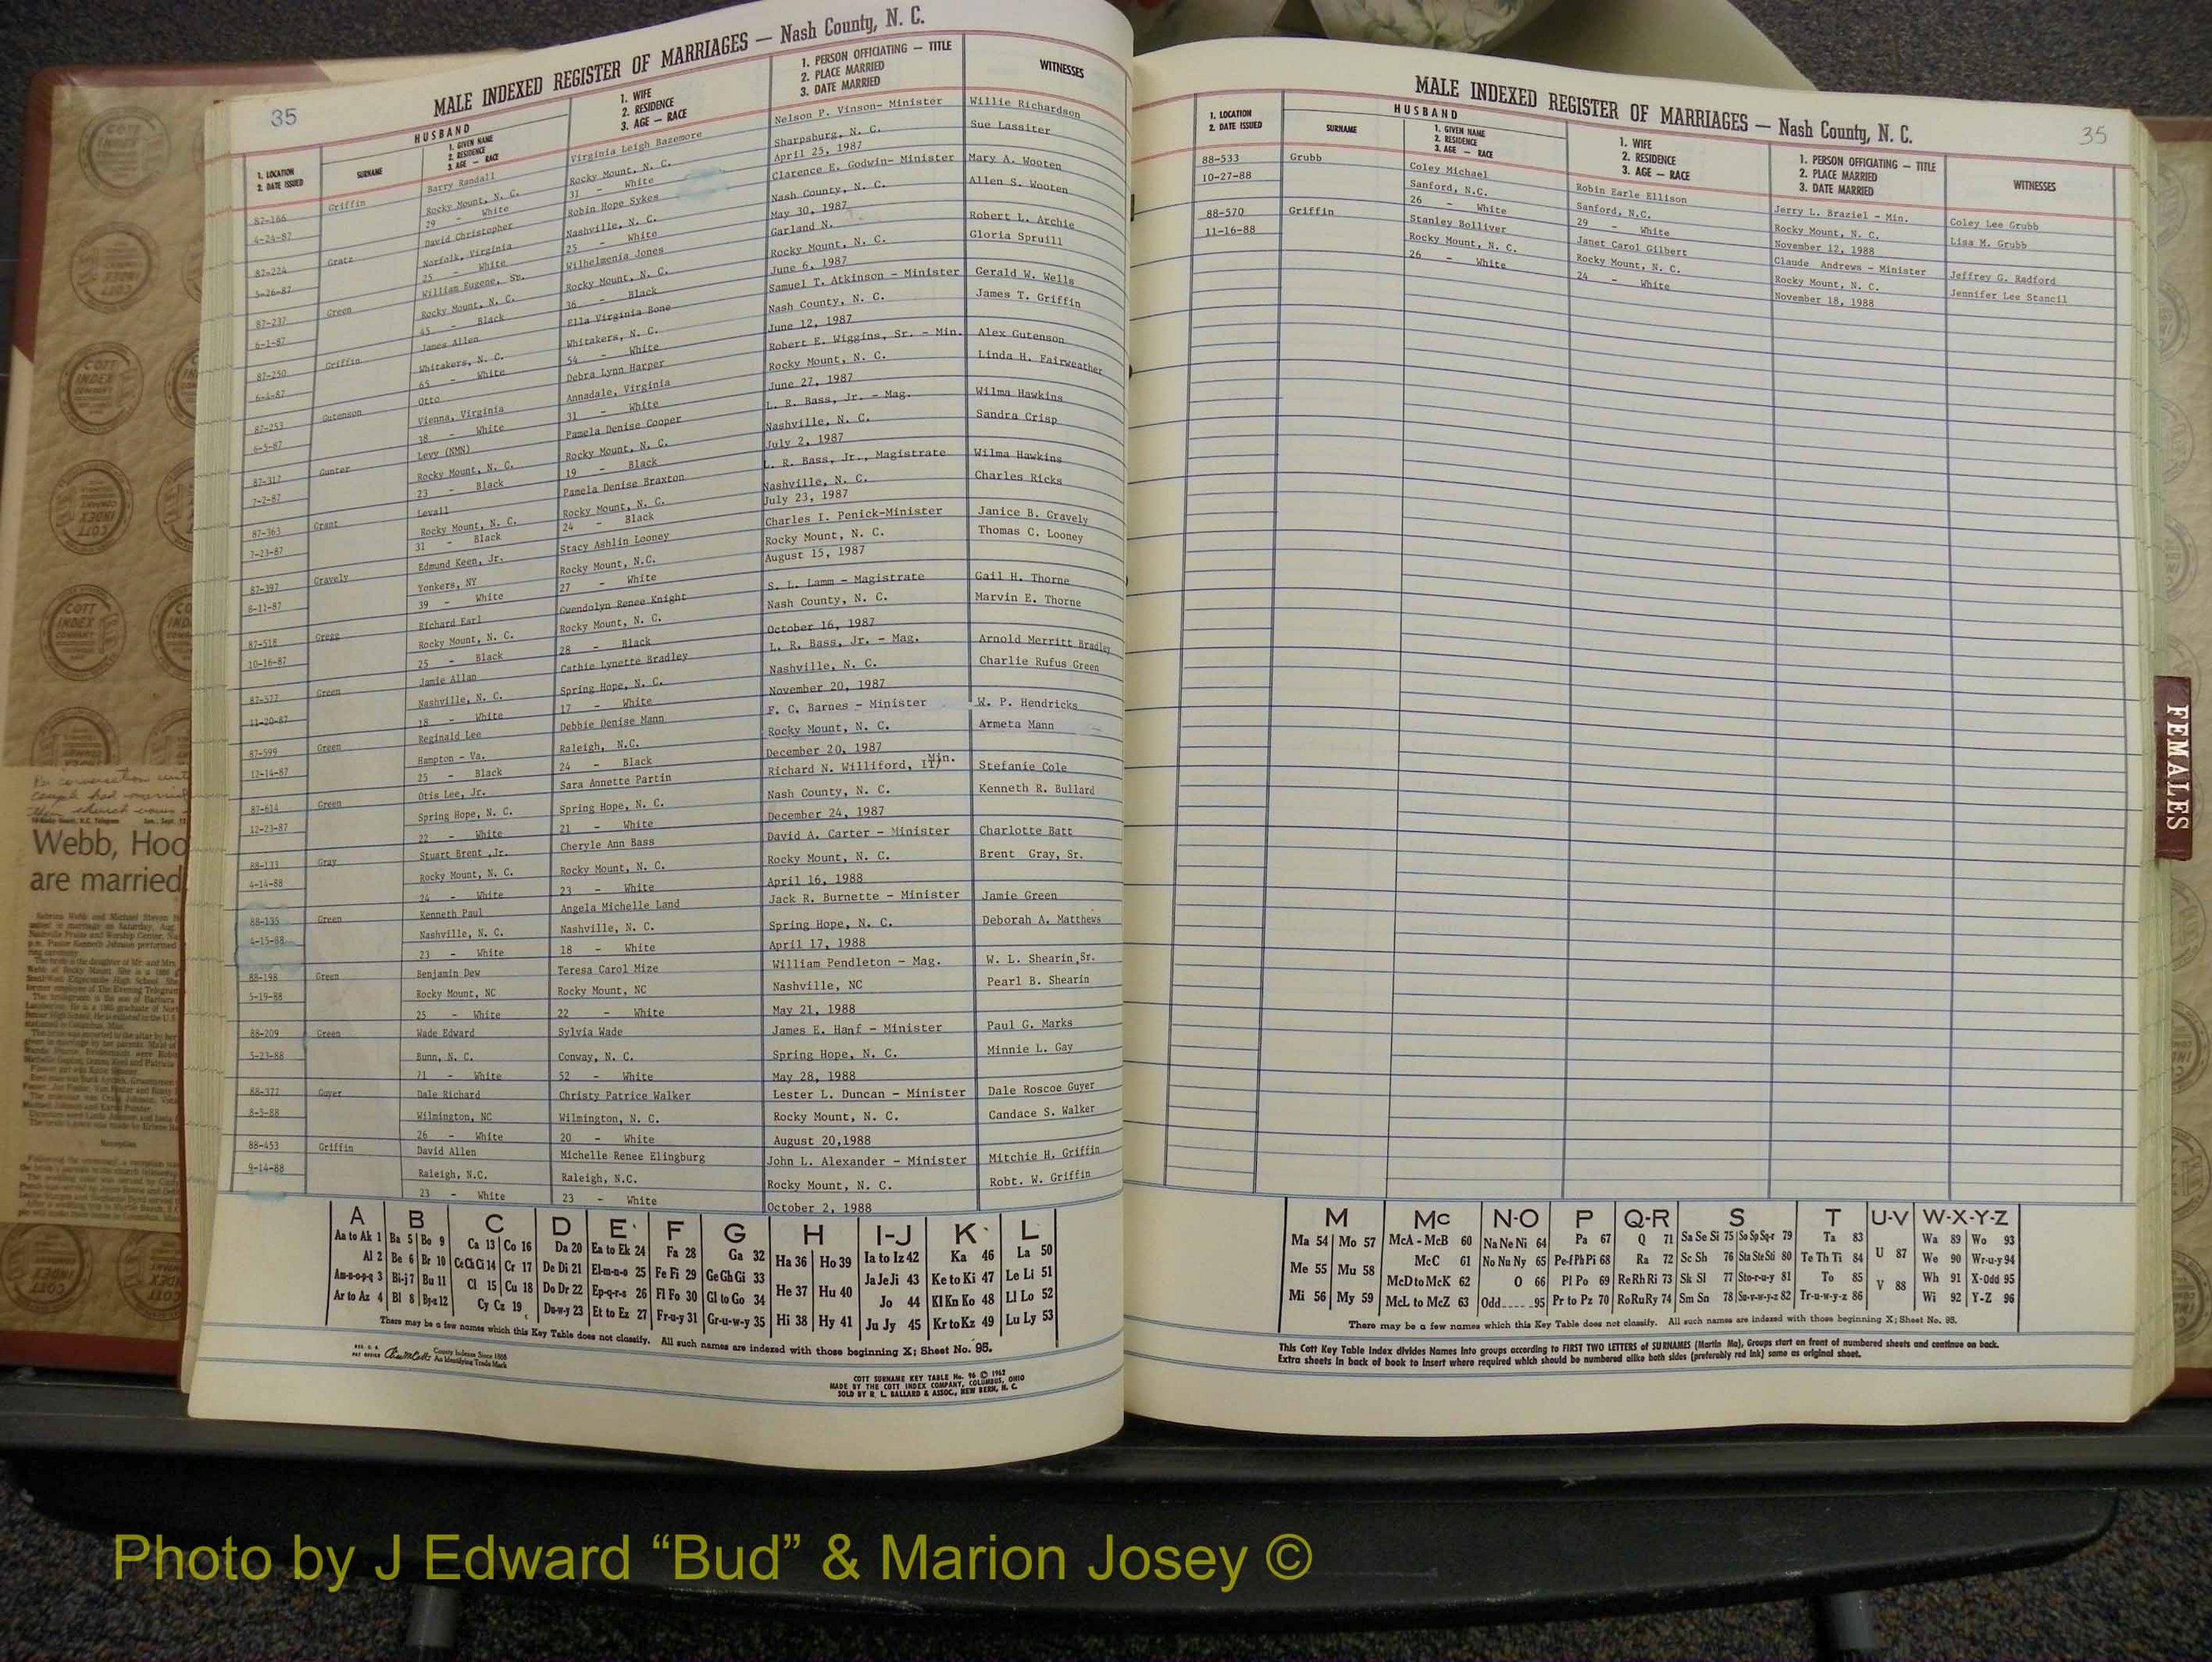 35
MALE INDEXED REGISTER OF MARRIAGES — Nash County, N. C.
1. LOCATION
2. DATE ISSUED
HUSBAND
SURNAME
1. GIVEN NAME
2. RESIDENCE
3. AGE — RACE
1. WIFE
2. RESIDENCE
3. AGE — RACE
1. PERSON OFFICIATING — TITLE
2. PLACE MARRIED
3. DATE MARRIED
WITNESSES
87-166 Griffin Barry Randall Virginia Leigh Bazemore Nelson P. Vinson- Minister Willie Richardson
4-24-87 Rocky Mount, N. C. Rocky Mount, N. C. Sharpsburg, N. C. Sue Lassiter
29 - White 31 - White April 25, 1987
87-224 Gratz David Christopher Robin Hope Sykes Clarence E. Godwin- Minister Mary A. Wooten
5-26-87 Norfolk, Virginia Nashville, N. C. Nash County, N. C. Allen S. Wooten
25 - White 25 - White May 30, 1987
87-237 Green William Eugene, Sr. Wilhelmenia Jones Garland N. Robert L. Archie
6-1-87 Rocky Mount, N. C. Rocky Mount, N. C. Rocky Mount, N. C. Gloria Spruill
45 - Black 36 - Black June 6, 1987
87-250 Griffin James Allen Ella Virginia Bone Samuel T. Atkinson - Minister Gerald W. Wells
6-4-87 Whitakers, N. C. Whitakers, N. C. Nash County, N. C. James T. Griffin
65 - White 54 - White June 12, 1987
87-253 Gutenson Otto Debra Lynn Harper Robert E. Wiggins, Sr. - Min. Alex Gutenson
6-5-87 Vienna, Virginia Annadale, Virginia Rocky Mount, N. C. Linda H. Fairweather
38 - White 31 - White June 27, 1987
87-317 Gunter Levy (NMN) Pamela Denise Cooper L. R. Bass, Jr. - Mag. Wilma Hawkins
7-2-87 Rocky Mount, N. C. Rocky Mount, N. C. Nashville, N. C. Sandra Crisp
23 - Black 19 - Black July 2, 1987
87-363 Grant Levall Pamela Denise Braxton L. R. Bass, Jr., Magistrate Wilma Hawkins
7-23-87 Rocky Mount, N. C. Rocky Mount, N. C. Nashville, N. C. Charles Ricks
31 - Black 24 - Black July 23, 1987
87-397 Gravely Edmund Keen, Jr. Stacy Ashlin Looney Charles I. Penick-Minister Janice B. Gravely
8-11-87 Yonkers, NY Rocky Mount, N.C. Rocky Mount, N. C. Thomas C. Looney
39 - White 27 - White August 15, 1987
87-518 Gregg Richard Earl Gwendolyn Renee Knight S. L. Lamm - Magistrate Gail H. Thorne
10-16-87 Rocky Mount, N. C. Rocky Mount, N. C. Nash County, N. C. Marvin E. Thorne
25 - Black 28 - Black October 16, 1987
87-577 Green Jamie Allan Cathie Lynette Bradley L. R. Bass, Jr. - Mag. Arnold Merritt Bradley
11-20-87 Nashville, N. C. Spring Hope, N. C. Nashville, N. C. Charlie Rufus Green
18 - White 17 - White November 20, 1987
87-599 Green Reginald Lee Debbie Denise Mann F. C. Barnes - Minister W. P. Hendricks
12-14-87 Hampton - Va. Raleigh, N.C. Rocky Mount, N. C. Armeta Mann
25 - Black 24 - Black December 20, 1987
87-614 Green Otis Lee, Jr. Sara Annette Partin Richard N. Williford, II/ Min. Stefanie Cole
12-23-87 Spring Hope, N. C. Spring Hope, N. C. Nash County, N. C. Kenneth R. Bullard
22 - White 21 - White December 24, 1987
88-133 Gray Stuart Brent ,Jr. Cheryle Ann Bass David A. Carter - Minister Charlotte Batt
4-14-88 Rocky Mount, N. C. Rocky Mount, N. C. Rocky Mount, N. C. Brent Gray, Sr.
24 - White 23 - White April 16, 1988
88-135 Green Kenneth Paul Angela Michelle Land Jack R. Burnette - Minister Jamie Green
4-15-88 Nashville, N. C. Nashville, N. C. Spring Hope, N. C. Deborah A. Matthews
23 - White 18 - White April 17, 1988
88-198 Green Benjamin Dew Teresa Carol Mize William Pendleton - Mag. W. L. Shearin,Sr.
5-19-88 Rocky Mount, NC Rocky Mount, NC Nashville, NC Pearl B. Shearin
25 - White 22 - White May 21, 1988
88-209 Green Wade Edward Sylvia Wade James E. Hanf - Minister Paul G. Marks
5-23-88 Bunn, N. C. Conway, N. C. Spring Hope, N. C. Minnie L. Gay
71 - White 52 - White May 28, 1988
88-377 Guyer Dale Richard Christy Patrice Walker Lester L. Duncan - Minister Dale Roscoe Guyer
8-5-88 Wilmington, NC Wilmington, N. C. Rocky Mount, N. C. Candace S. Walker
26 - White 20 - White August 20,1988
88-453 Griffin David Allen Michelle Renee Elingburg John L. Alexander - Minister Mitchie H. Griffin
9-14-88 Raleigh, N.C. Raleigh, N.C. Rocky Mount, N. C. Robt. W. Griffin
23 - White 23 - White October 2, 1988
A B C D E F G H I-J K L
Aa to Ak 1 Ba 5 Bo 9 Ca 13 Co 16 Da 20 Ea to Ek 24 Fa 28 Ga 32 Ha 36 Ho 39 Ia to Iz 42 Ka 46 La 50
Al 2 Be 6 Br 10 Ce Ch Ci 14 Cr 17 De Di 21 El-m-n-o 25 Fe Fi 29 Ge Gh Gi 33 He 37 Hu 40 Ja Je Ji 43 Ke to Ki 47 Le Li 51
Am-n-o-p-q 3 Bi-j 7 Bu 11 Cl 15 Cu 18 Do Dr 22 Ep-q-r-s 26 Fl Fo 30 Gl to Go 34 Hi 38 Hy 41 Jo 44 Kl Kn Ko 48 Ll Lo 52
Ar to Az 4 Bl 8 By-z 12 Cy Cz 19 Du-w-y 23 Et to Ez 27 Fr-u-y 31 Gr-u-w-y 35 Ju Jy 45 Kr to Kz 49 Lu Ly 53
There may be a few names which this Key Table does not classify. All such names are indexed with those beginning X; Sheet No. 95.
County Indexes Since 1888
An Identifying Trade Mark
COTT SURNAME KEY TABLE No. 96 © 1962
MADE BY THE COTT INDEX COMPANY, COLUMBUS, OHIO
SOLD BY R. L. BALLARD & ASSOC., NEW BERN, N. C.
MALE INDEXED REGISTER OF MARRIAGES — Nash County, N. C.
35
1. LOCATION
2. DATE ISSUED
HUSBAND
SURNAME
1. GIVEN NAME
2. RESIDENCE
3. AGE — RACE
1. WIFE
2. RESIDENCE
3. AGE — RACE
1. PERSON OFFICIATING — TITLE
2. PLACE MARRIED
3. DATE MARRIED
WITNESSES
88-533 Grubb Coley Michael Robin Earle Ellison Jerry L. Braziel - Min. Coley Lee Grubb
10-27-88 Sanford, N.C. Sanford, N.C. Rocky Mount, N. C. Lisa M. Grubb
26 - White 29 - White November 12, 1988
88-570 Griffin Stanley Bolliver Janet Carol Gilbert Claude Andrews - Minister Jeffrey G. Radford
11-16-88 Rocky Mount, N. C. Rocky Mount, N. C. Rocky Mount, N. C. Jennifer Lee Stancil
26 - White 24 - White November 18, 1988
M Mc N-O P Q-R S T U-V W-X-Y-Z
Ma 54 Mo 57 McA - McB 60 Na Ne Ni 64 Pa 67 Q 71 Sa Se Si 75 So Sp Sq-r 79 Ta 83 U 87 Wa 89 Wo 93
Me 55 Mu 58 McC 61 No Nu Ny 65 Pe-f Ph Pi 68 Ra 72 Sc Sh 76 Sta Ste Sti 80 Te Th Ti 84 V 88 We 90 Wr-u-y 94
McD to McK 62 O 66 Pl Po 69 Re Rh Ri 73 Sk Sl 77 Sto-r-u-y 81 To 85 Wh 91 X-Odd 95
Mi 56 My 59 McL to McZ 63 Odd 95 Pr to Pz 70 Ro Ru Ry 74 Sm Sn 78 Su-v-w-y-z 82 Tr-u-w-y-z 86 Wi 92 Y-Z 96
There may be a few names which this Key Table does not classify. All such names are indexed with those beginning X; Sheet No. 95.
This Cott Key Table Index divides Names into groups according to FIRST TWO LETTERS of SURNAMES (Martin Ma), Groups start on front of numbered sheets and continue on back.
Extra sheets in back of book to insert where required which should be numbered alike both sides (preferably red ink) same as original sheet.
FEMALES
COTT
INDEX
COMPANY
Webb, Hoo
are married
Reception
Photo by J Edward “Bud” & Marion Josey ©